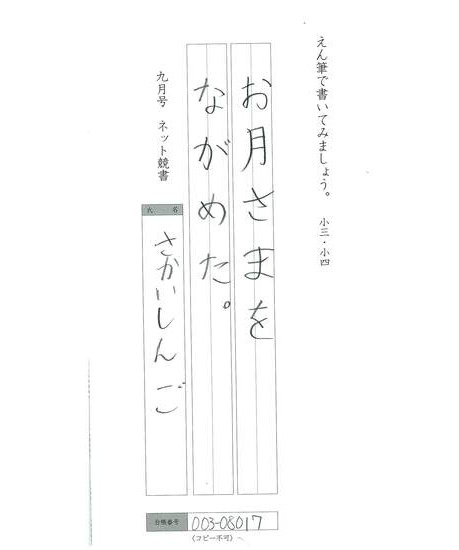 えん筆で書いてみましょう。 小三・小四
お月さまを
ながめた。
九月号 ネット競書
氏 名
さかいしんご
台帳番号 003-08017
(コピー不可)